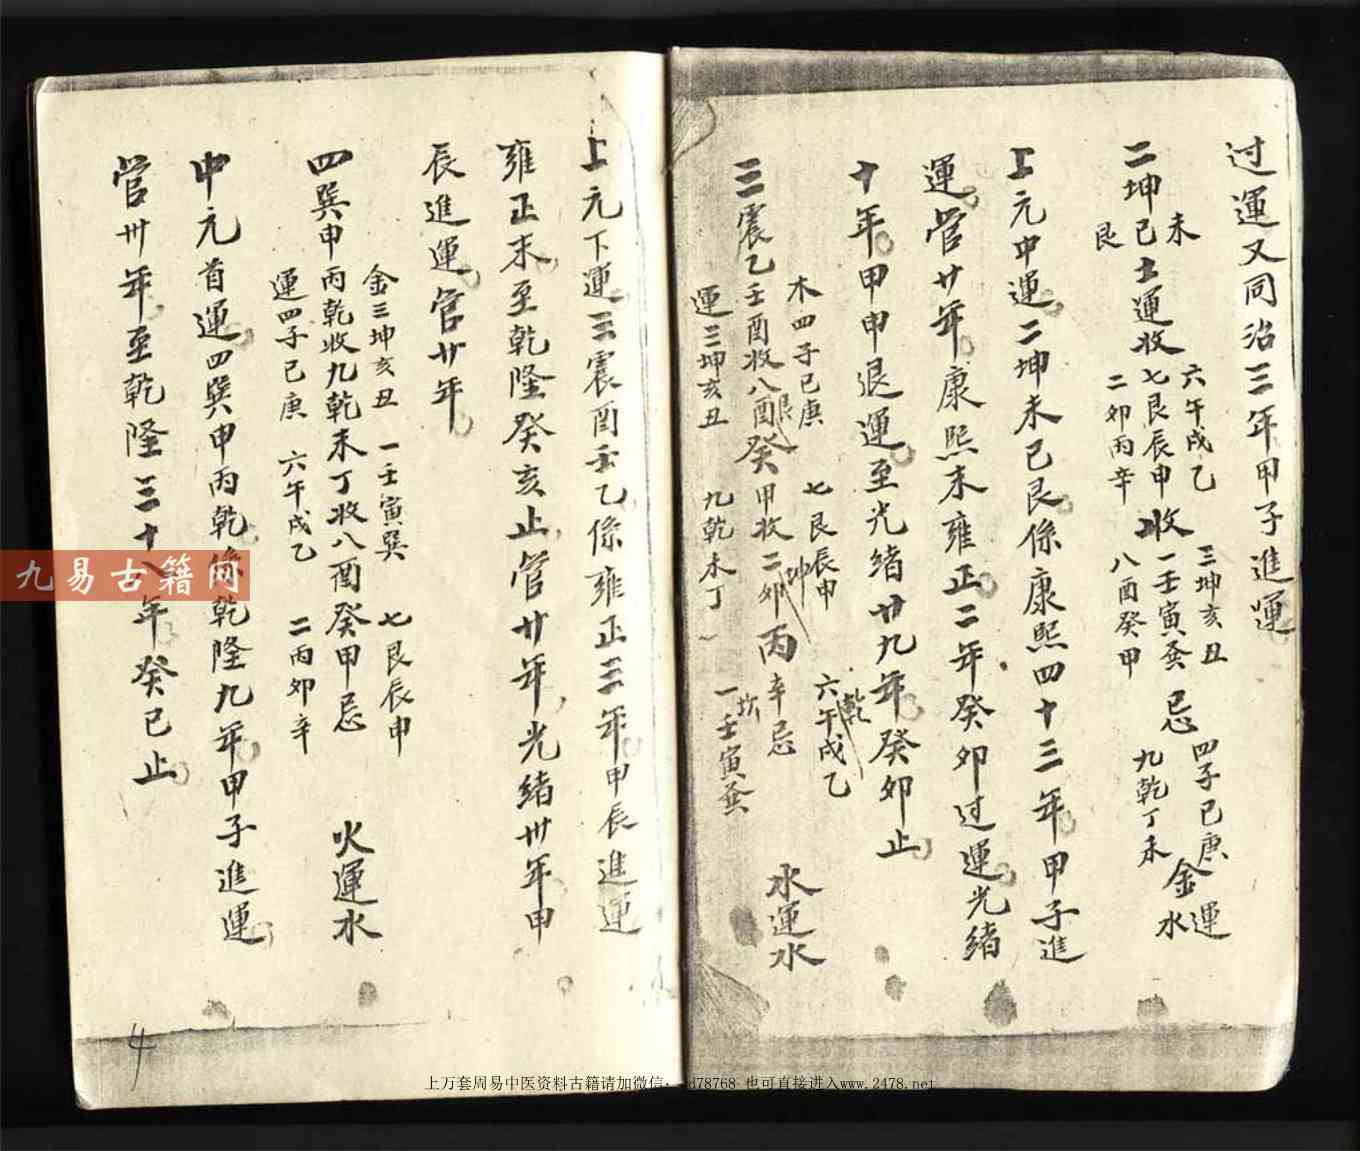 过運又同治三年甲子進運
二坤已土運收
未
艮
六午戌乙
七艮辰申
二卯丙辛
收
三坤亥丑
一壬寅巽
八酉癸甲
忌
四子巳庚
九乾丁未
金運
水
上元中運二坤未已艮係康熙四十三年甲子進
運管廿年康熙末雍正二年癸卯过運光緒
十年甲申退運至光緒廿九年癸卯止
三震乙壬酉收八酉癸甲收二卯丙辛忌
木四子已庚
七艮辰申
六午戌乙
乾
艮
坤
坎
運三坤亥丑
九乾未丁
一壬寅巽
水運水
上元下運三震酉壬乙係雍正三年甲辰進運
雍正末至乾隆癸亥止管廿年光緒卅年甲
辰進運管廿年
金三坤亥丑
一壬寅巽
七艮辰申
四巽申丙乾收九乾未丁收八酉癸甲忌
運四子已庚
六午戌乙
二丙卯辛
火運水
中元首運四巽申丙乾係乾隆九年甲子進運
管卅年至乾隆三十八年癸已止
4
九易古籍网
上万套周易中医资料古籍请加微信:d78768 也可直接进入www.2478.net